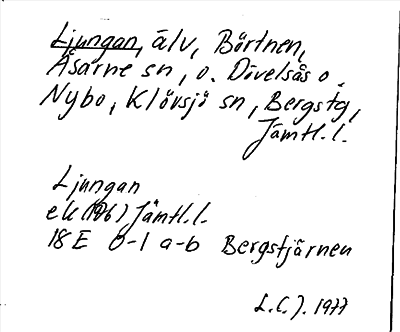 Ljungan, älv, Börtnen,
Åsarne sn, o. Dövelsås o.
Nybo, Klövsjö sn, Bergstg,
Jämtl.l.
Ljungan
ek (196) Jämtl.l.
18 E 0-1 a-b Bergstjärnen
L.C.J. 1977